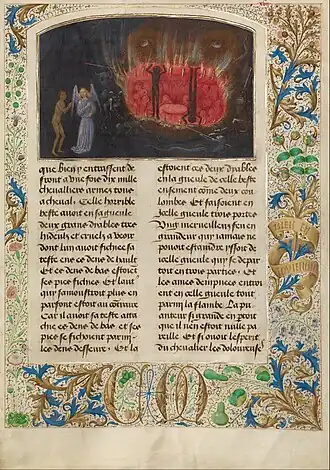 que bien y entrassent de
front a une fois dix mille
chevalliers armes tous
a cheval. Celle horrible
beste avoit en sa gueule
deux grans dyables tres
hideux et cruelz a veoir
dont lun avoit fichee sa
teste ens es dens de hault
Et es dens de bas estoient
ses piez fichies. Et lautre
qui samonstroit plus en
parfont estoit au contraire
Car il avoit sa teste atta
chee es dens de bas et ses
piez se fichoient parmy
les dens desseure. Et la
estoient ces deux dyables
en la gueule de celle beste
ensement comme deux cou
lombes. Et faisoient en
celle gueule trois portes
Ung merveilleux feu en
grandeur qui jamais ne
pouoit estaindre yssoit de
celle gueule qui se depar
toit en trois parties. Et
les ames dampnees entroi
ent en celle gueule tout
parmy la flambe. La pu
eur si grande en
que il nen estoit nulle pa
reille. Et si ouoit lesperit
du chevalier les doloureuse